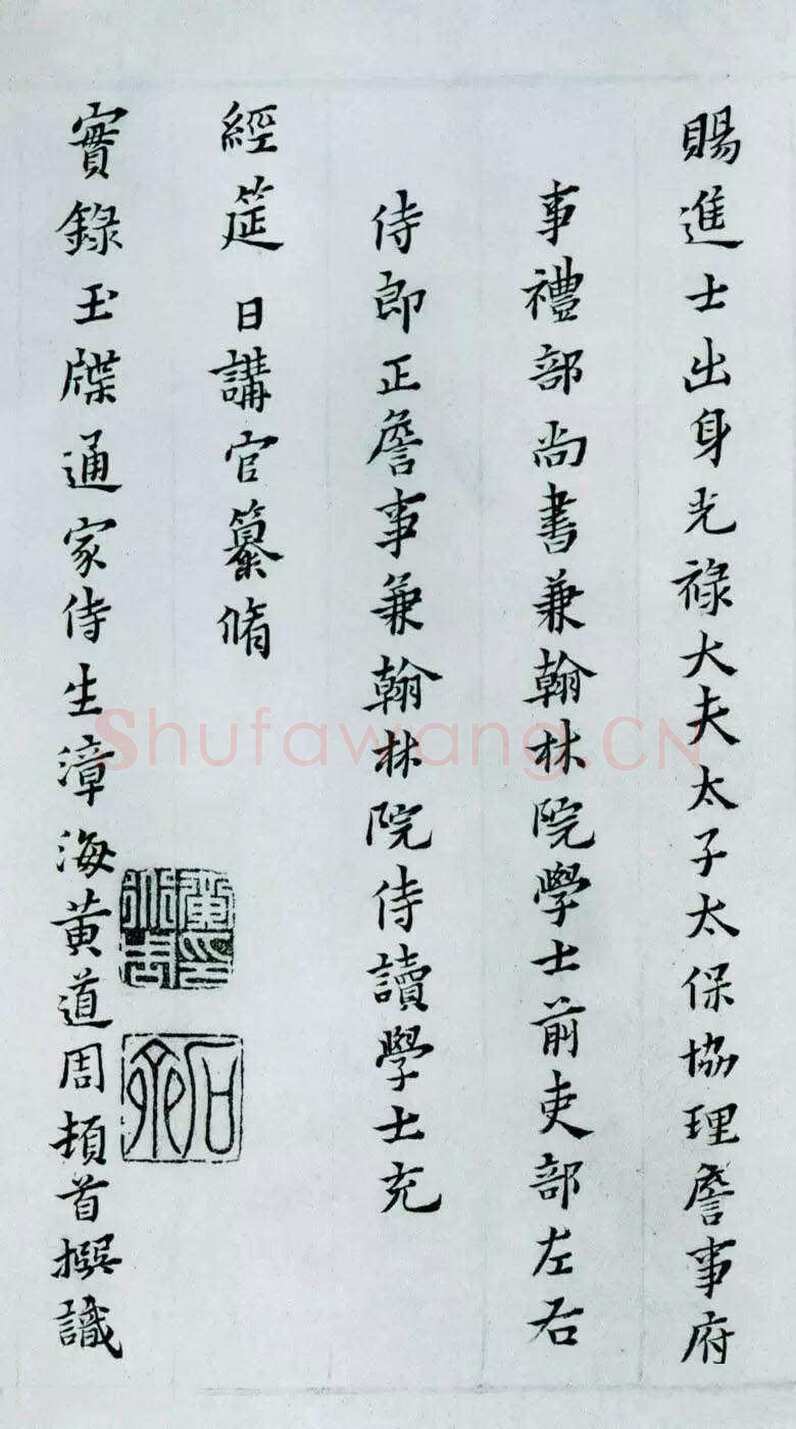 賜進士出身光祿大夫太子太保協理詹事府
事禮部尚書兼翰林院學士前吏部左右
侍郎正詹事兼翰林院侍讀學士充
經筵日講官纂脩
實錄玉牒通家侍生漳海黃道周頓首撰識
石齋
Shufawang.CN